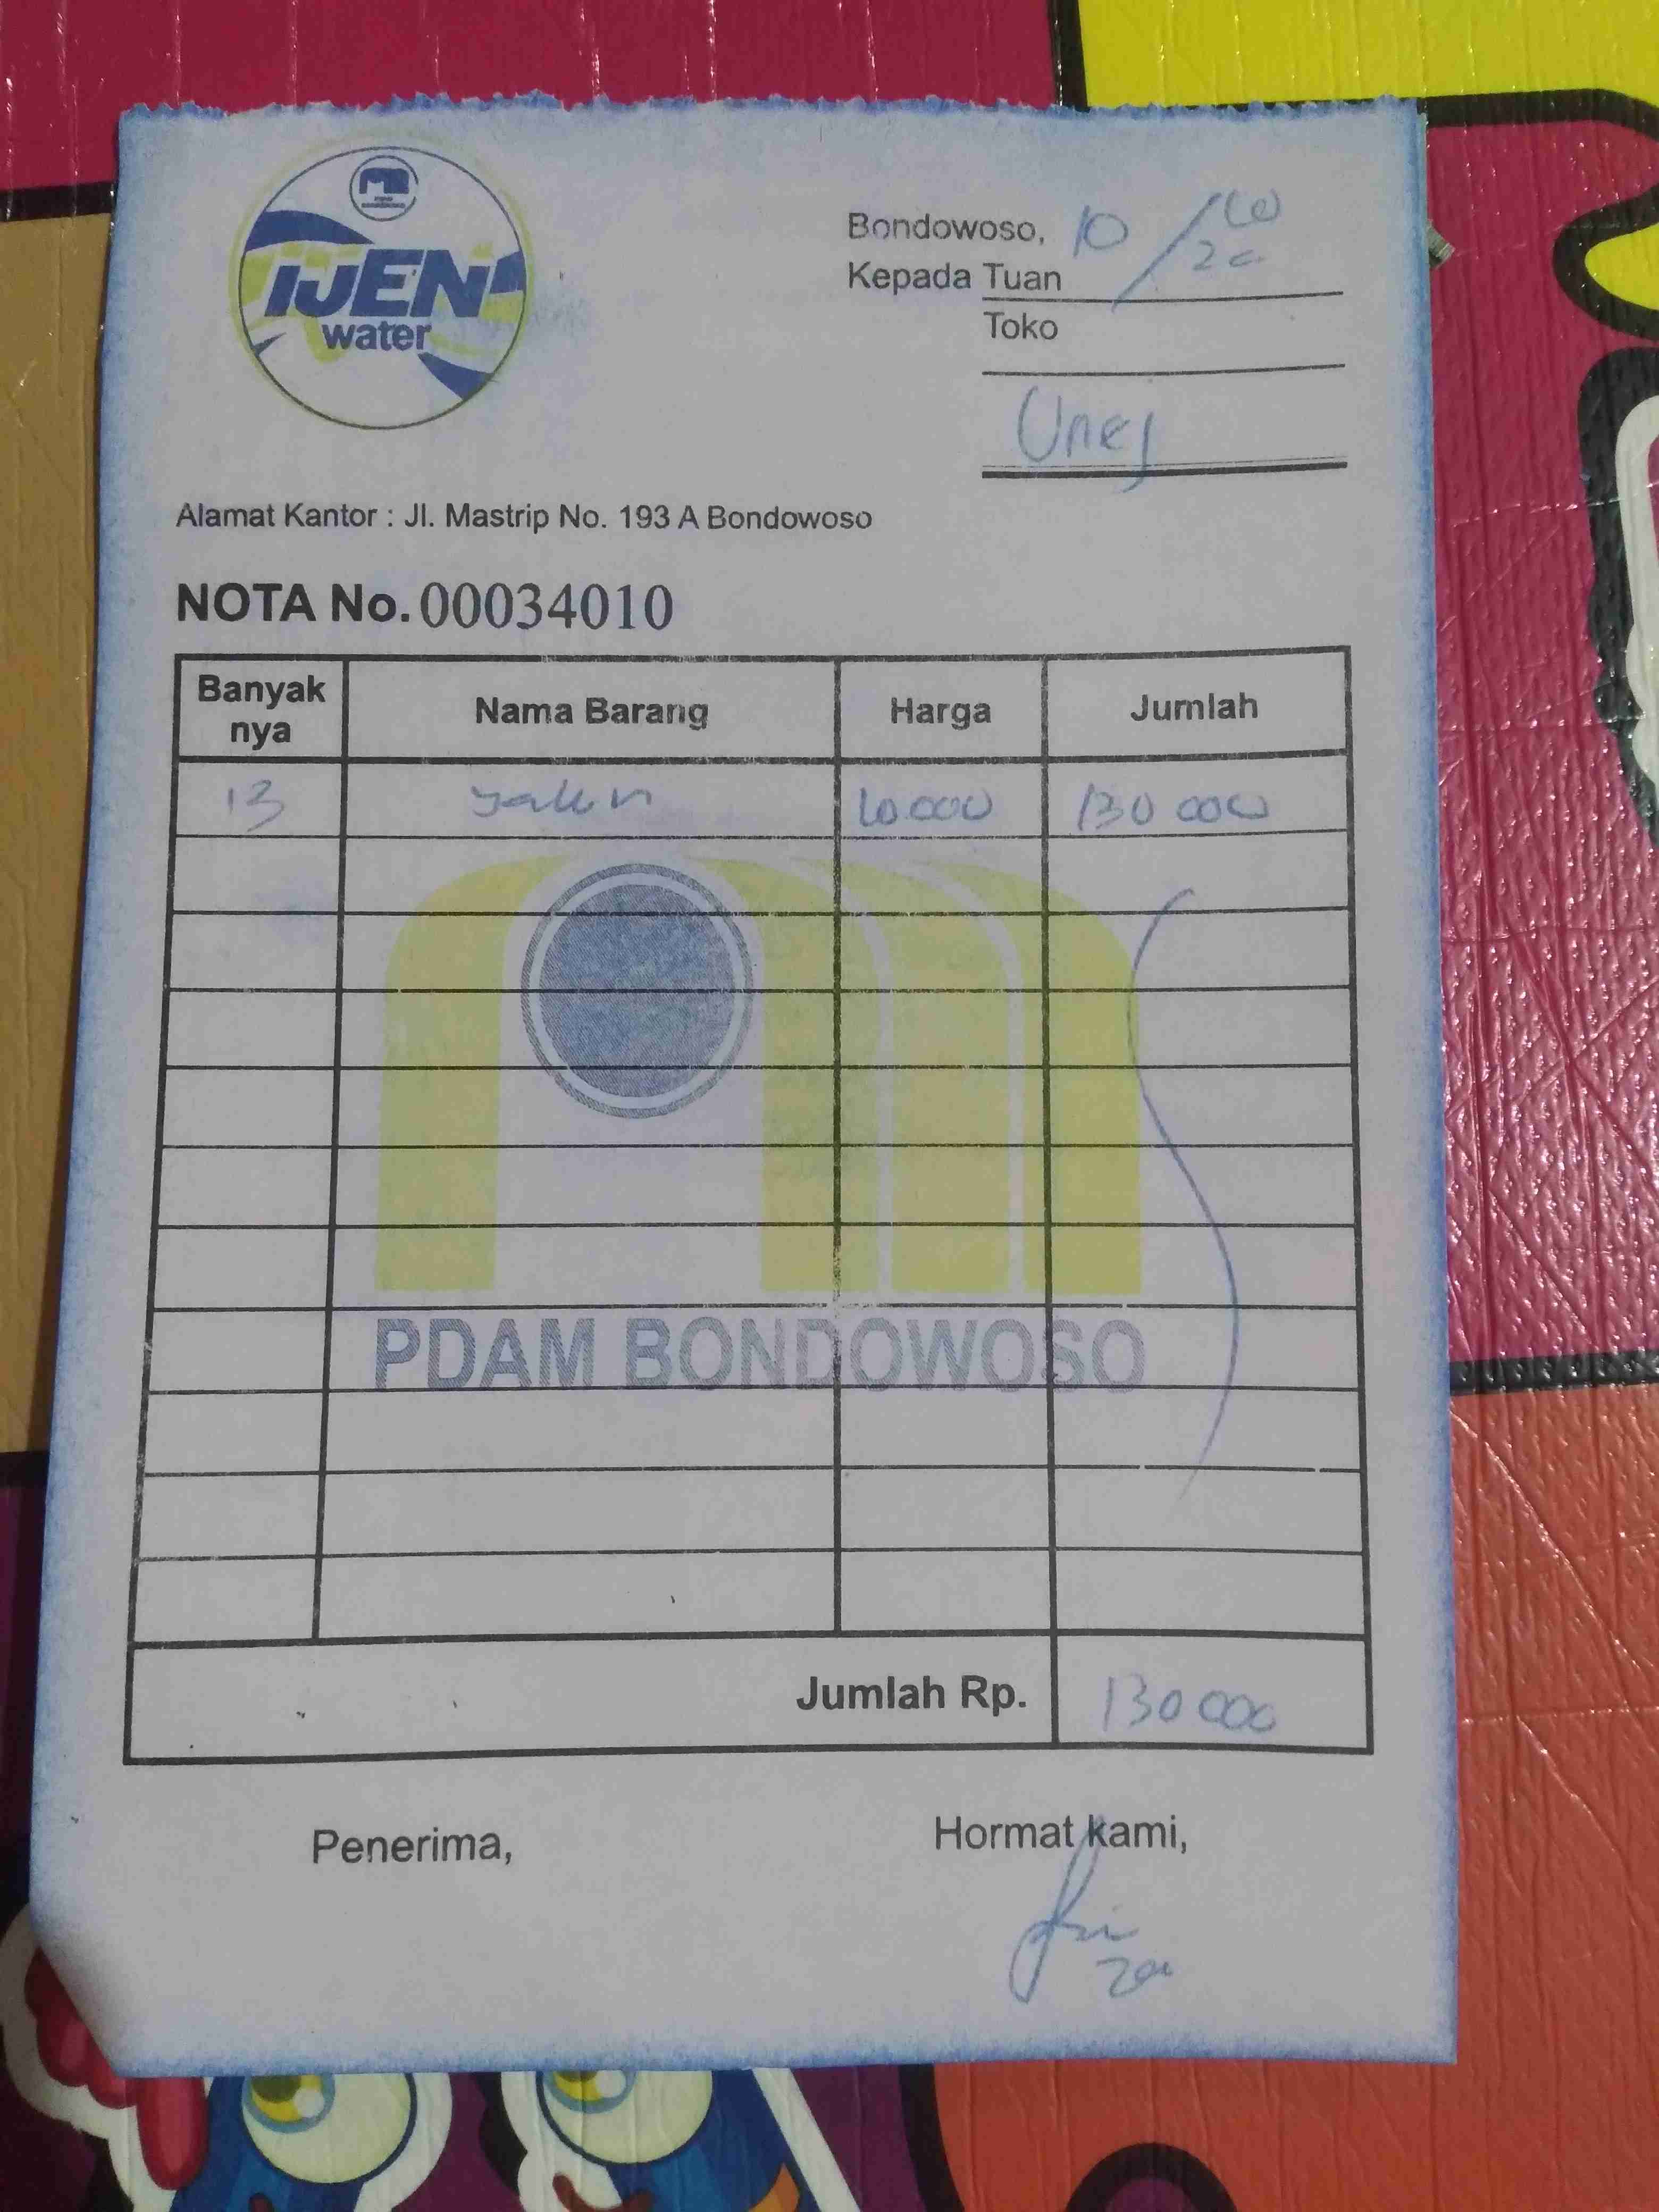 IJEN
water
Bondowoso, 10/10
20
Kepada Tuan
Toko
Unej
Alamat Kantor : Jl. Mastrip No. 193 A Bondowoso
NOTA No. 00034010
Banyak nya Nama Barang Harga Jumlah
13 10.000 130 000
PDAM BONDOWOSO
Jumlah Rp. 130 000
Penerima, Hormat kami,